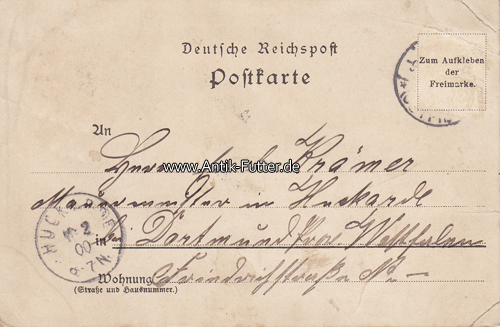 Deutsche Reichspost
Postkarte
Zum Aufkleben
der
Freimarke.
An
Herrn Krämer
www.Antik-Futter.de
Maurermeister in Huckarde
in Dortmund Prov. Westfalen
Wohnung Friedrichstraße No —
(Straße und Hausnummer.)
HUCKARDE
2
00
7-